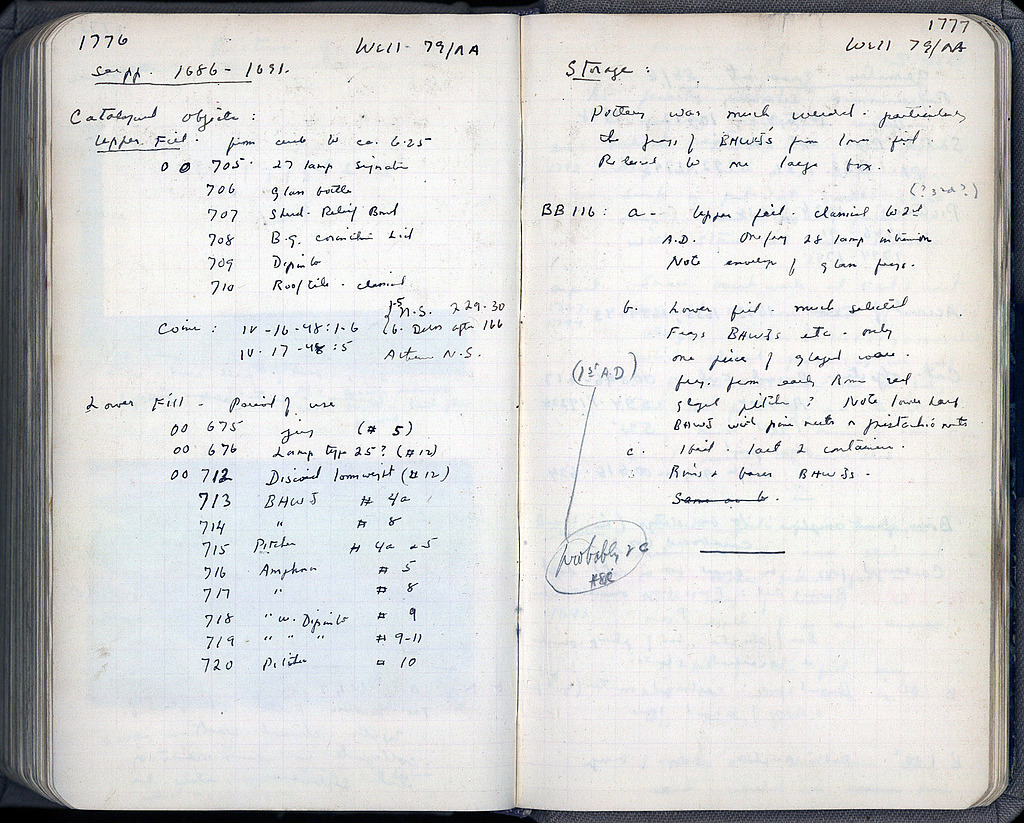 1776
Well 79/ΛΛ
supp. 1686-1691.
Catalogued objects:
Upper Fill. from curb to ca. 6.25
OO 705. 27 lamp signature
706 glass bottle
707 Stud. Relief Bowl
708 B.g. lid
709 Dipinto
710 Rooftile. classical
Coins: IV-16-48:1-6 { 1-5 N.S. 229-30
6. after 166
IV-17-48:5 N.S.
Lower Fill Period of use
OO 675 jug (# 5)
OO 676 Lamp type 25? (# 12)
OO 712 Discoid loomweight (# 12)
713 BHWJ # 4a
714 " # 8
715 Pitcher # 4a + 5
716 Amphora # 5
717 " # 8
718 " w. Dipinto # 9
719 " " " # 9-11
720 Pitcher # 10
1777
Well 79/ΛΛ
Storage:
Pottery was much weeded. particularly
the frags of BHWJs from lower fill
Reduced to one large box.
(? 3rd ?)
BB 116: a - Upper fill. classical to 2nd
A.D. One frag 28 lamp
Note envelope of glass frags.
b. Lower fill. much selected
Frags BHWJs etc. only
one piece of glazed ware.
frag. from early Rom red
glazed pitcher? Note lower part
BHWJ with pine nuts + pistachio nuts
c. 1 tail. last 2 containers.
Rims + bases BHWJs.
Same as b.
(1st A.D)
probably 2 C
HSR